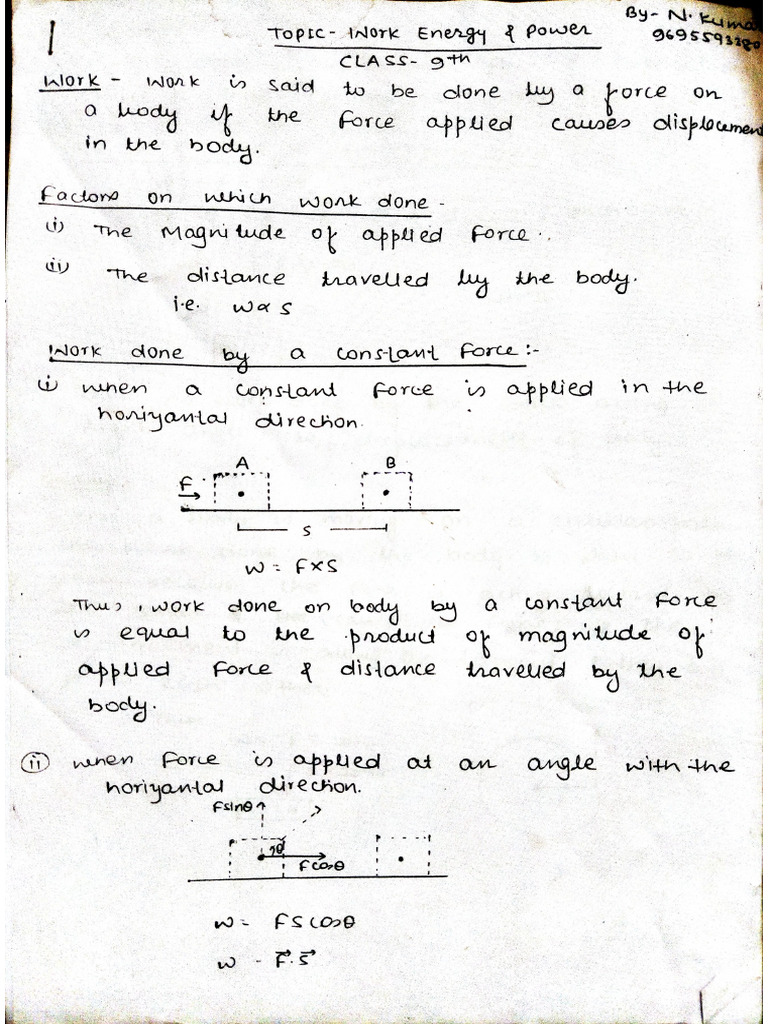 1
By- N. Kumar
9695593280
Topic- Work Energy & Power
CLASS- 9th
Work - Work is said to be done by a force on
a body if the force applied causes displacement
in the body.
Factors on which work done -
(i) The Magnitude of applied force.
(ii) The distance travelled by the body.
i.e. W ∝ S
Work done by a constant force :-
(i) when a constant force is applied in the
horizantal direction.
A B
F
S
W = F×S
Thus, work done on body by a constant force
is equal to the product of magnitude of
applied force & distance travelled by the
body.
(ii) when force is applied at an angle with the
horizantal direction.
Fsinθ
θ
Fcosθ
W = FS cosθ
W - F⃗.S⃗